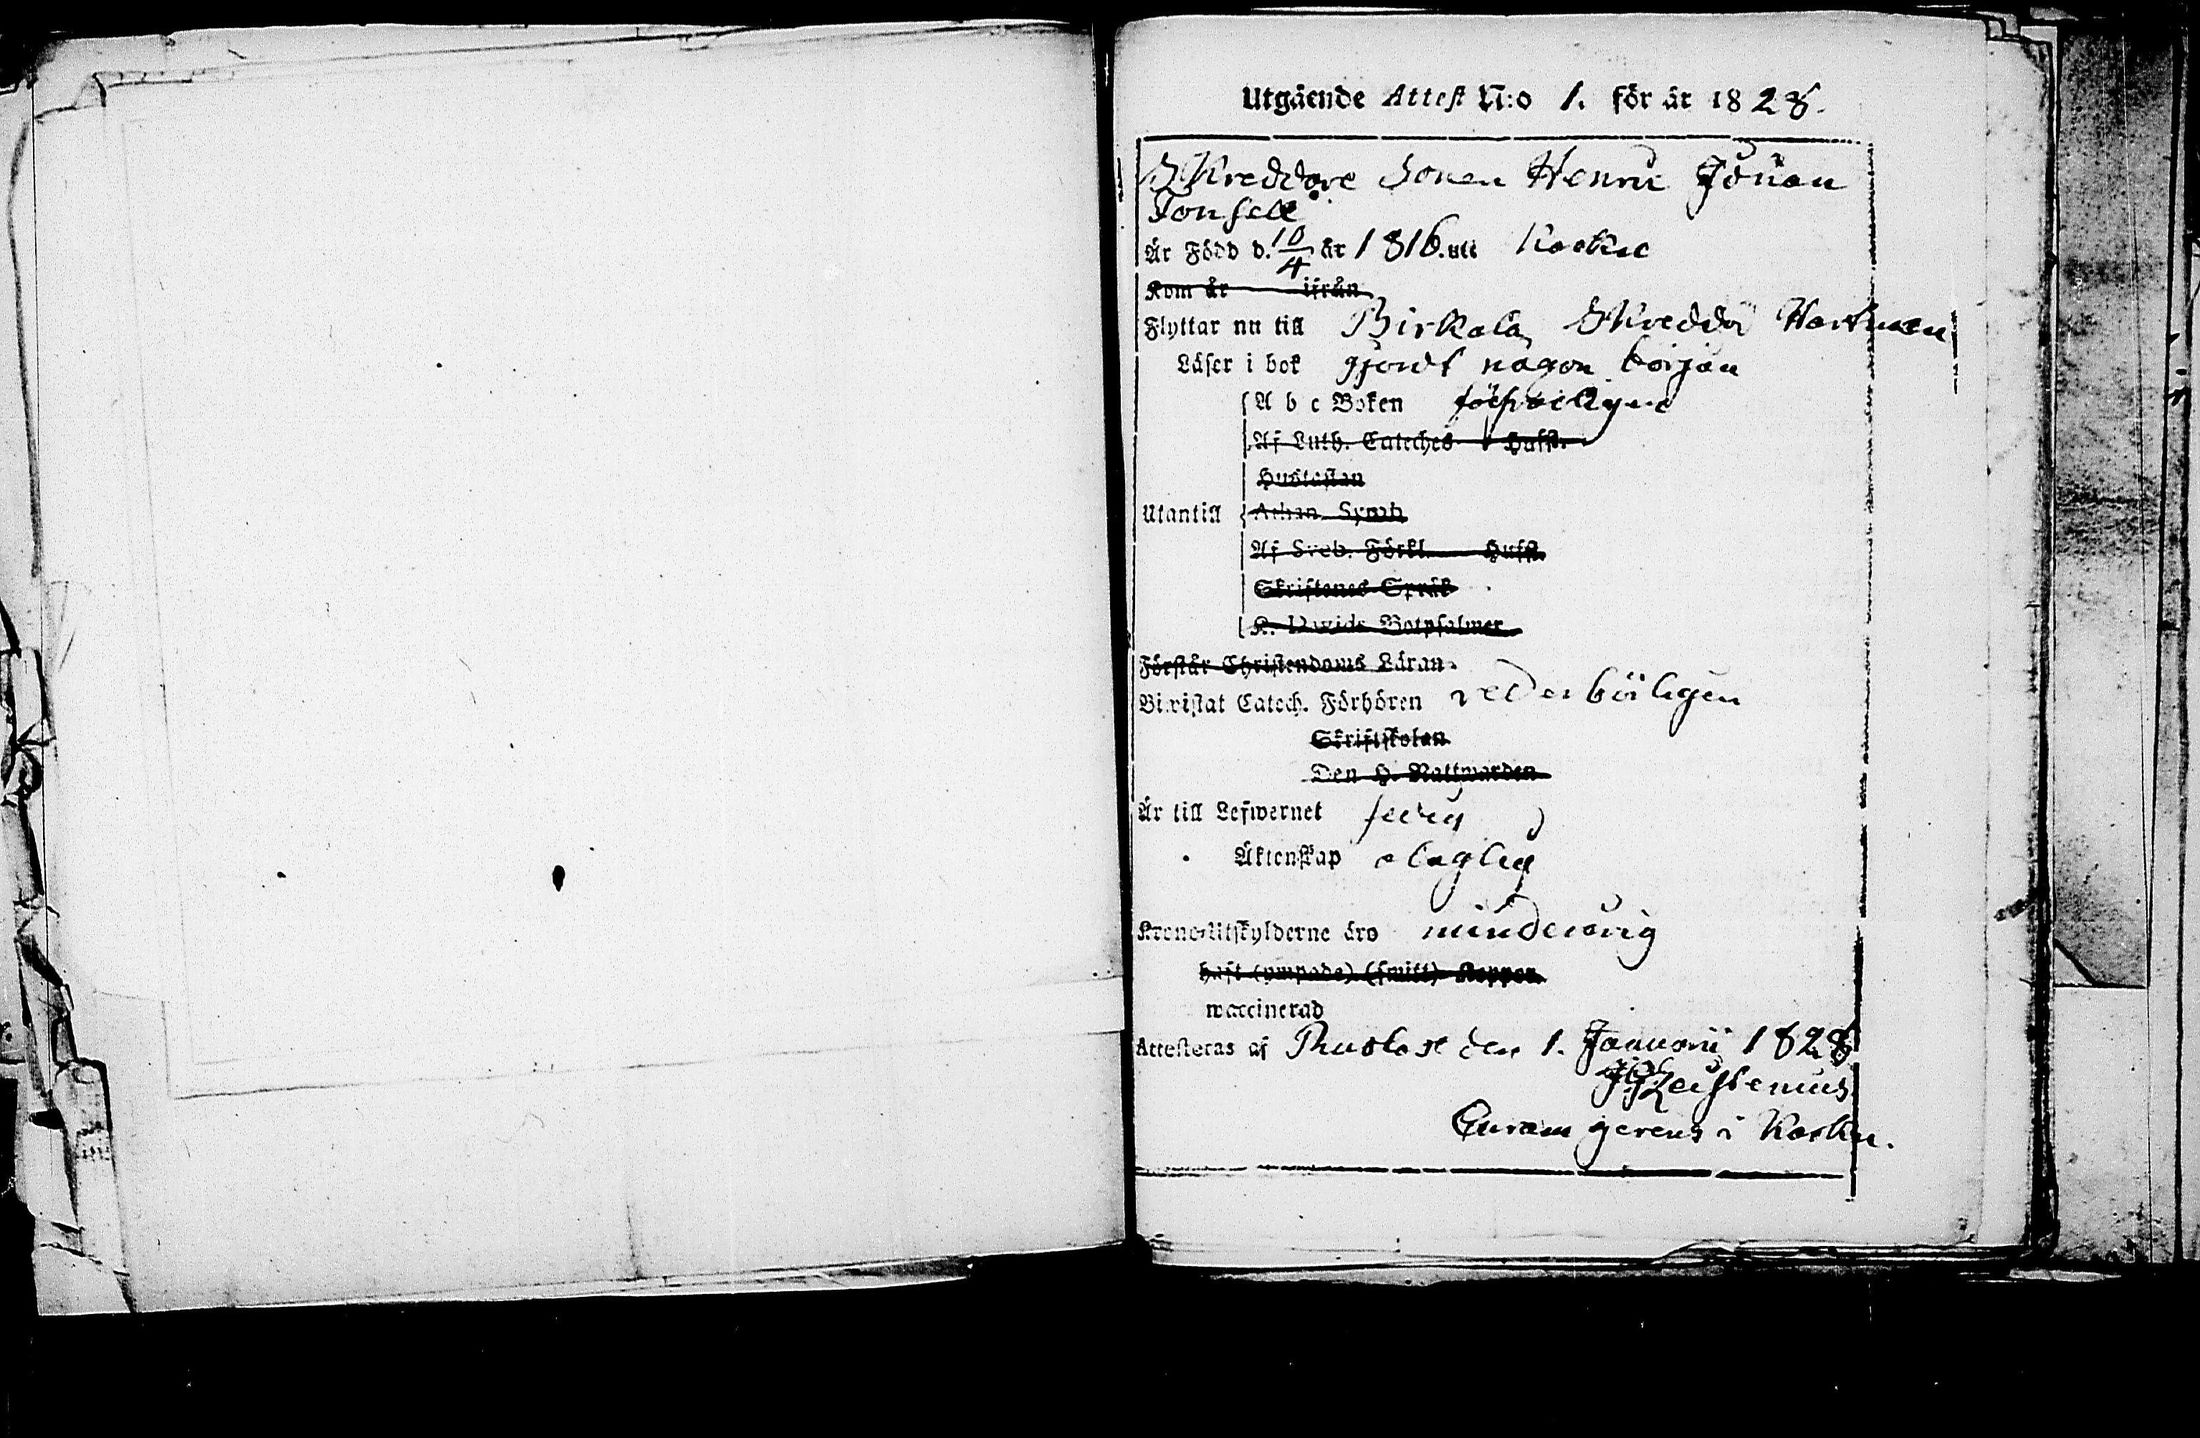 Utgående Attest N:o 1. för år 1828.
Skreddare Sonen Henric Johan
Tonsell
Är Född d. 10/4 år 1816. uti Koskis
Kom år ifrån
Flyttar nu till Birkala Skreddar Hartman
Läser i bok gjordt någon början
A b c Boken försvarligen
Af Luth. Cateches Hufst.
Hustaflan
Utantill Athan. Symb
Af Sveb. Förkl. Hufst.
Skriftenes Språk
K. Davids Botpsalmer
Förstår Christendoms Läran
Biwistat Catech. Förhören vederbörligen
Skriftskolan
Den H. Nattwarden
Är till Lefwernet sedig
Äktenskap olaglig
Krono-Utskylderne äro minderårig
haft (ympade) (smitt) Koppor
waccinerad
Attesteras af den 1. Januarii 1828
Curam gerens i Koskis.